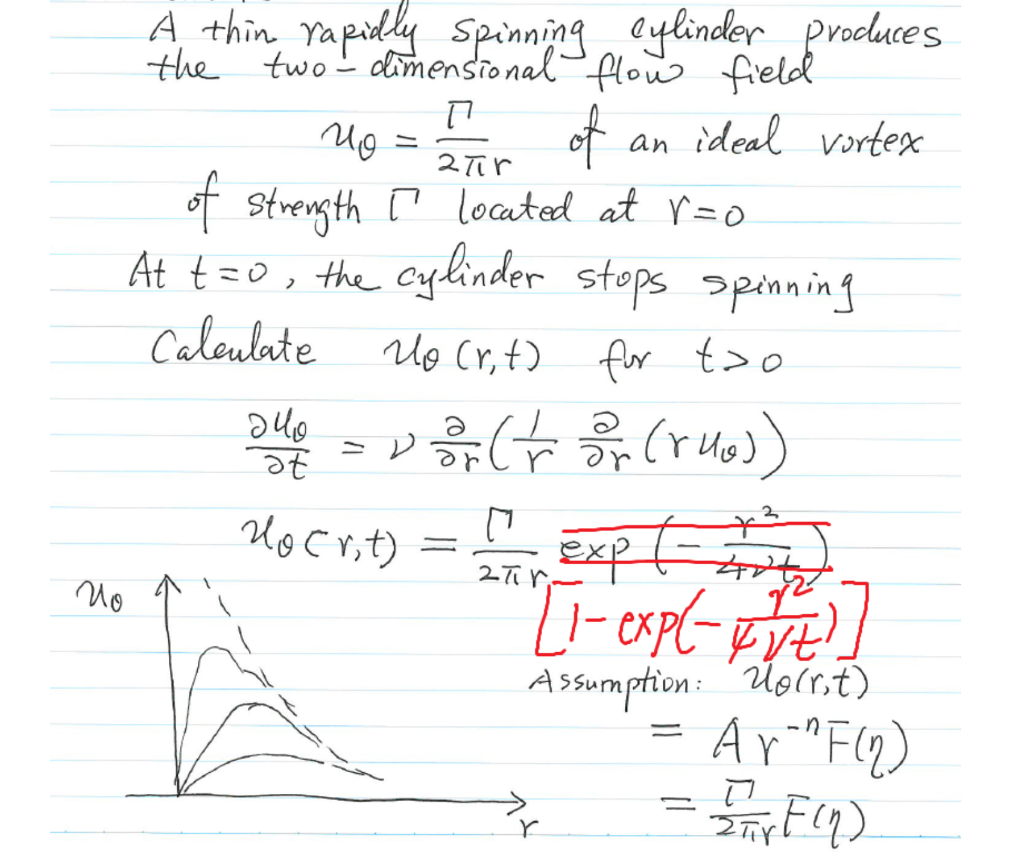 A thin rapidly spinning cylinder produces
the two-dimensional flow field
u_θ = Γ / 2πr of an ideal vortex
of strength Γ located at r=0
At t=0, the cylinder stops spinning
Calculate u_θ(r,t) for t>0
∂u_θ/∂t = ν ∂/∂r (1/r ∂/∂r (r u_θ))
u_θ(r,t) = Γ/2πr exp(-r²/4νt)
[1-exp(-r²/4νt)]
u_θ
Assumption: u_θ(r,t)
= A r^-n F(η)
= Γ/2πr F(η)
r